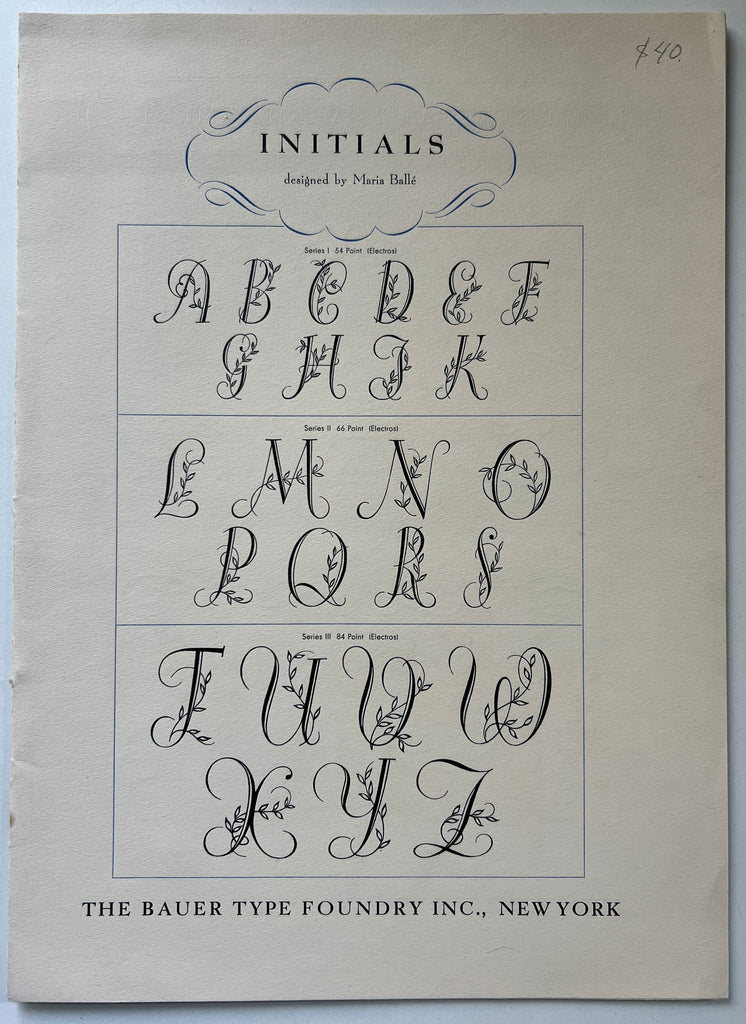 $40.
INITIALS
designed by Maria Ballé
Series I 54 Point (Electros)
A B C D E F
G H J K
Series II 66 Point (Electros)
L M N O
P Q R S
Series III 84 Point (Electros)
T U V W
X Y Z
THE BAUER TYPE FOUNDRY INC., NEW YORK